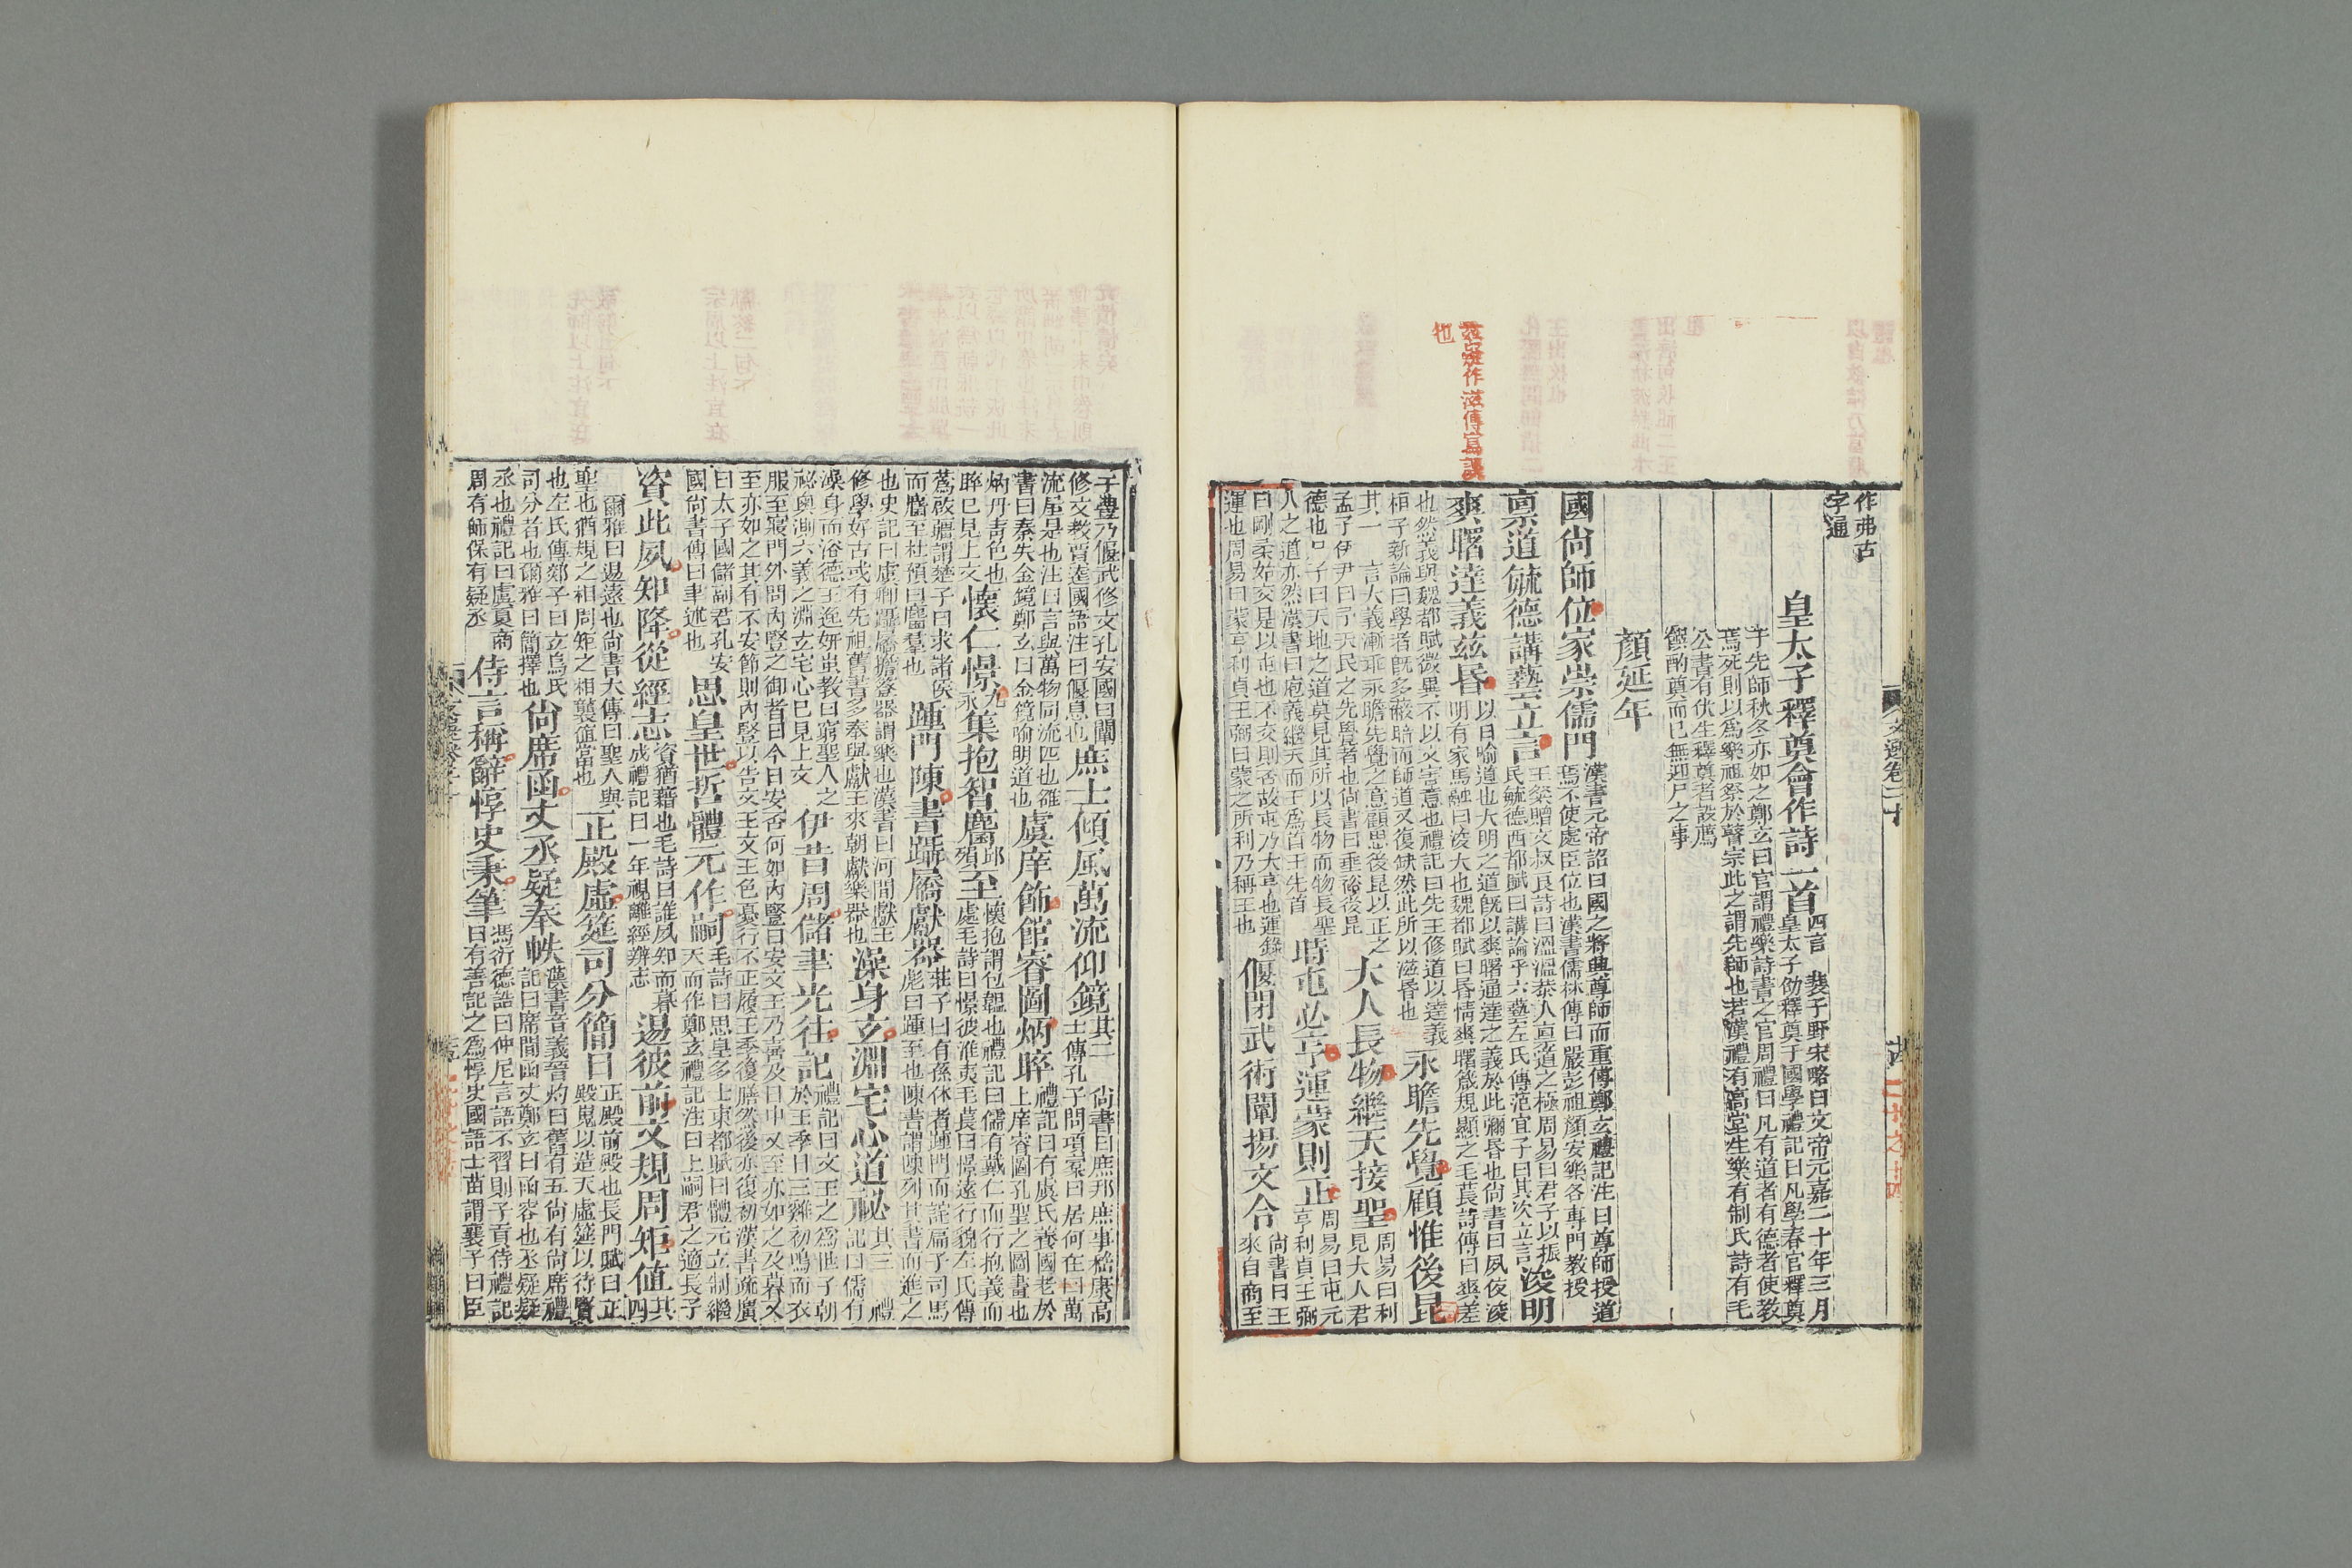 作弗古字通
皇太子釋奠會作詩一首四言　裴子野宋略曰文帝元嘉二十年三月皇太子劭釋奠于國學禮記曰凡學春官釋奠
于先師秋冬亦如之鄭玄曰官謂禮樂詩書之官周禮曰凡有道者有德者使教焉死則以爲樂祖祭於瞽宗此之謂先師也若漢禮有高堂生樂有制氏詩有毛
公書有伏生釋奠者設薦饌酌奠而已無迎尸之事
顏延年
國尚師位家崇儒門漢書元帝詔曰國之將興尊師而重傅鄭玄禮記注曰尊師授道焉不使處臣位也漢書儒林傳曰嚴彭祖顏安樂各專門教授
稟道毓德講藝立言王粲贈文叔良詩曰溫溫恭人稟道之極周易曰君子以振民毓德西都賦曰講論乎六藝左氏傳范宣子曰其次立言浚明
爽曙達義茲昏以日喻道也大明之道既以爽曙通達之義於此彌昏也尚書曰夙夜浚明有家馬融曰浚大也魏都賦曰昏情爽曙箴規顯之毛萇詩傳曰爽差
也然茲我與魏都賦微異不以文害意也禮記曰先王修道以達義桓子新論曰學者既多蔽暗而師道又復缺然此所以滋昏也永瞻先覺顧惟後昆
其一　言大義漸乖永瞻先覺之意顧思後昆以正之孟子伊尹曰予天民之先覺者也尚書曰垂裕後昆大人長物繼天接聖周易曰利見大人君
德也孔子曰天地之道莫見其所以長物而物長聖人之道亦然漢書曰庖羲繼天而王爲百王先首時屯必亨運蒙則正周易曰屯元亨利貞王弼
曰剛柔始交是以屯也不交則否故屯乃大亨也運錄運也周易曰蒙亨利貞王弼曰蒙之所利乃稱王也偃閉武術闡揚文令尚書曰王來自商至
于豐乃偃武修文孔安國曰闡修文教賈逵國語注曰偃息也庶士傾風萬流仰鏡其二　尚書曰庶邦庶事嵇康高士傳孔子問項橐曰居何在曰萬
流屋是也注曰言與萬物同流匹也雒書曰秦失金鏡鄭玄曰金鏡喻明道也虞庠飾館睿圖炳晬禮記曰有虞氏養國老於上庠睿圖孔聖之圖畫也
炳丹青色也晬已見上文懷仁憬九永集抱智麏邱殞至懷抱謂包韞也禮記曰儒有戴仁而行抱義而處毛詩曰憬彼淮夷毛萇曰憬遠行貌左氏傳
蒍啟疆謂楚子曰求諸侯而麏至杜預曰麏羣也踵門陳書躡屩獻器莊子曰有孫休者踵門而詫扁子司馬彪曰踵至也陳書謂陳列其書而進之
也史記曰虞卿躡屩擔簦器謂樂也漢書曰河間獻王修學好古或有先祖舊書多奉與獻王來朝獻樂器也澡身玄淵宅心道祕其三　禮記曰儒有
澡身而浴德王逸妍蚩教曰窮聖人之祕奧測六義之淵玄宅心已見上文伊昔周儲聿光往記禮記曰文王之爲世子朝於王季日三雞初鳴而衣
服至寢門外問內豎之御者曰今日安否何如內豎曰安文王乃喜及日中又至亦如之及暮又至亦如之其有不安節則內豎以告文王文王色憂行不正履王季復膳然後亦復初漢書疏廣
曰太子國儲副君孔安國尚書傳曰聿述也思皇世哲體元作嗣毛詩曰思皇多士東都賦曰體元立制繼天而作鄭玄禮記注曰上嗣君之適長子
資此夙知降從經志資猶藉也毛詩曰誰夙知而暮成禮記曰一年視離經辨志逷彼前文規周矩値其四
爾雅曰逷遠也尚書大傳曰聖人與聖也猶規之相周矩之相襲値當也正殿虛筵司分簡日正殿前殿也長門賦曰正殿嵬以造天虛筵以待賢
也左氏傳郯子曰玄鳥氏司分者也爾雅曰簡擇也尚席函丈丞疑奉帙漢書音義晉灼曰舊有五尚有尚席禮記曰席間函丈鄭玄曰函容也丞疑疑
丞也禮記曰虞夏商周有師保有疑丞侍言稱辭惇史秉筆馮衍德誥曰仲尼言語不習則子貢侍禮記曰有善記之爲惇史國語士茁謂襄子曰臣
茲當作滋傳寫誤也
文選卷二十